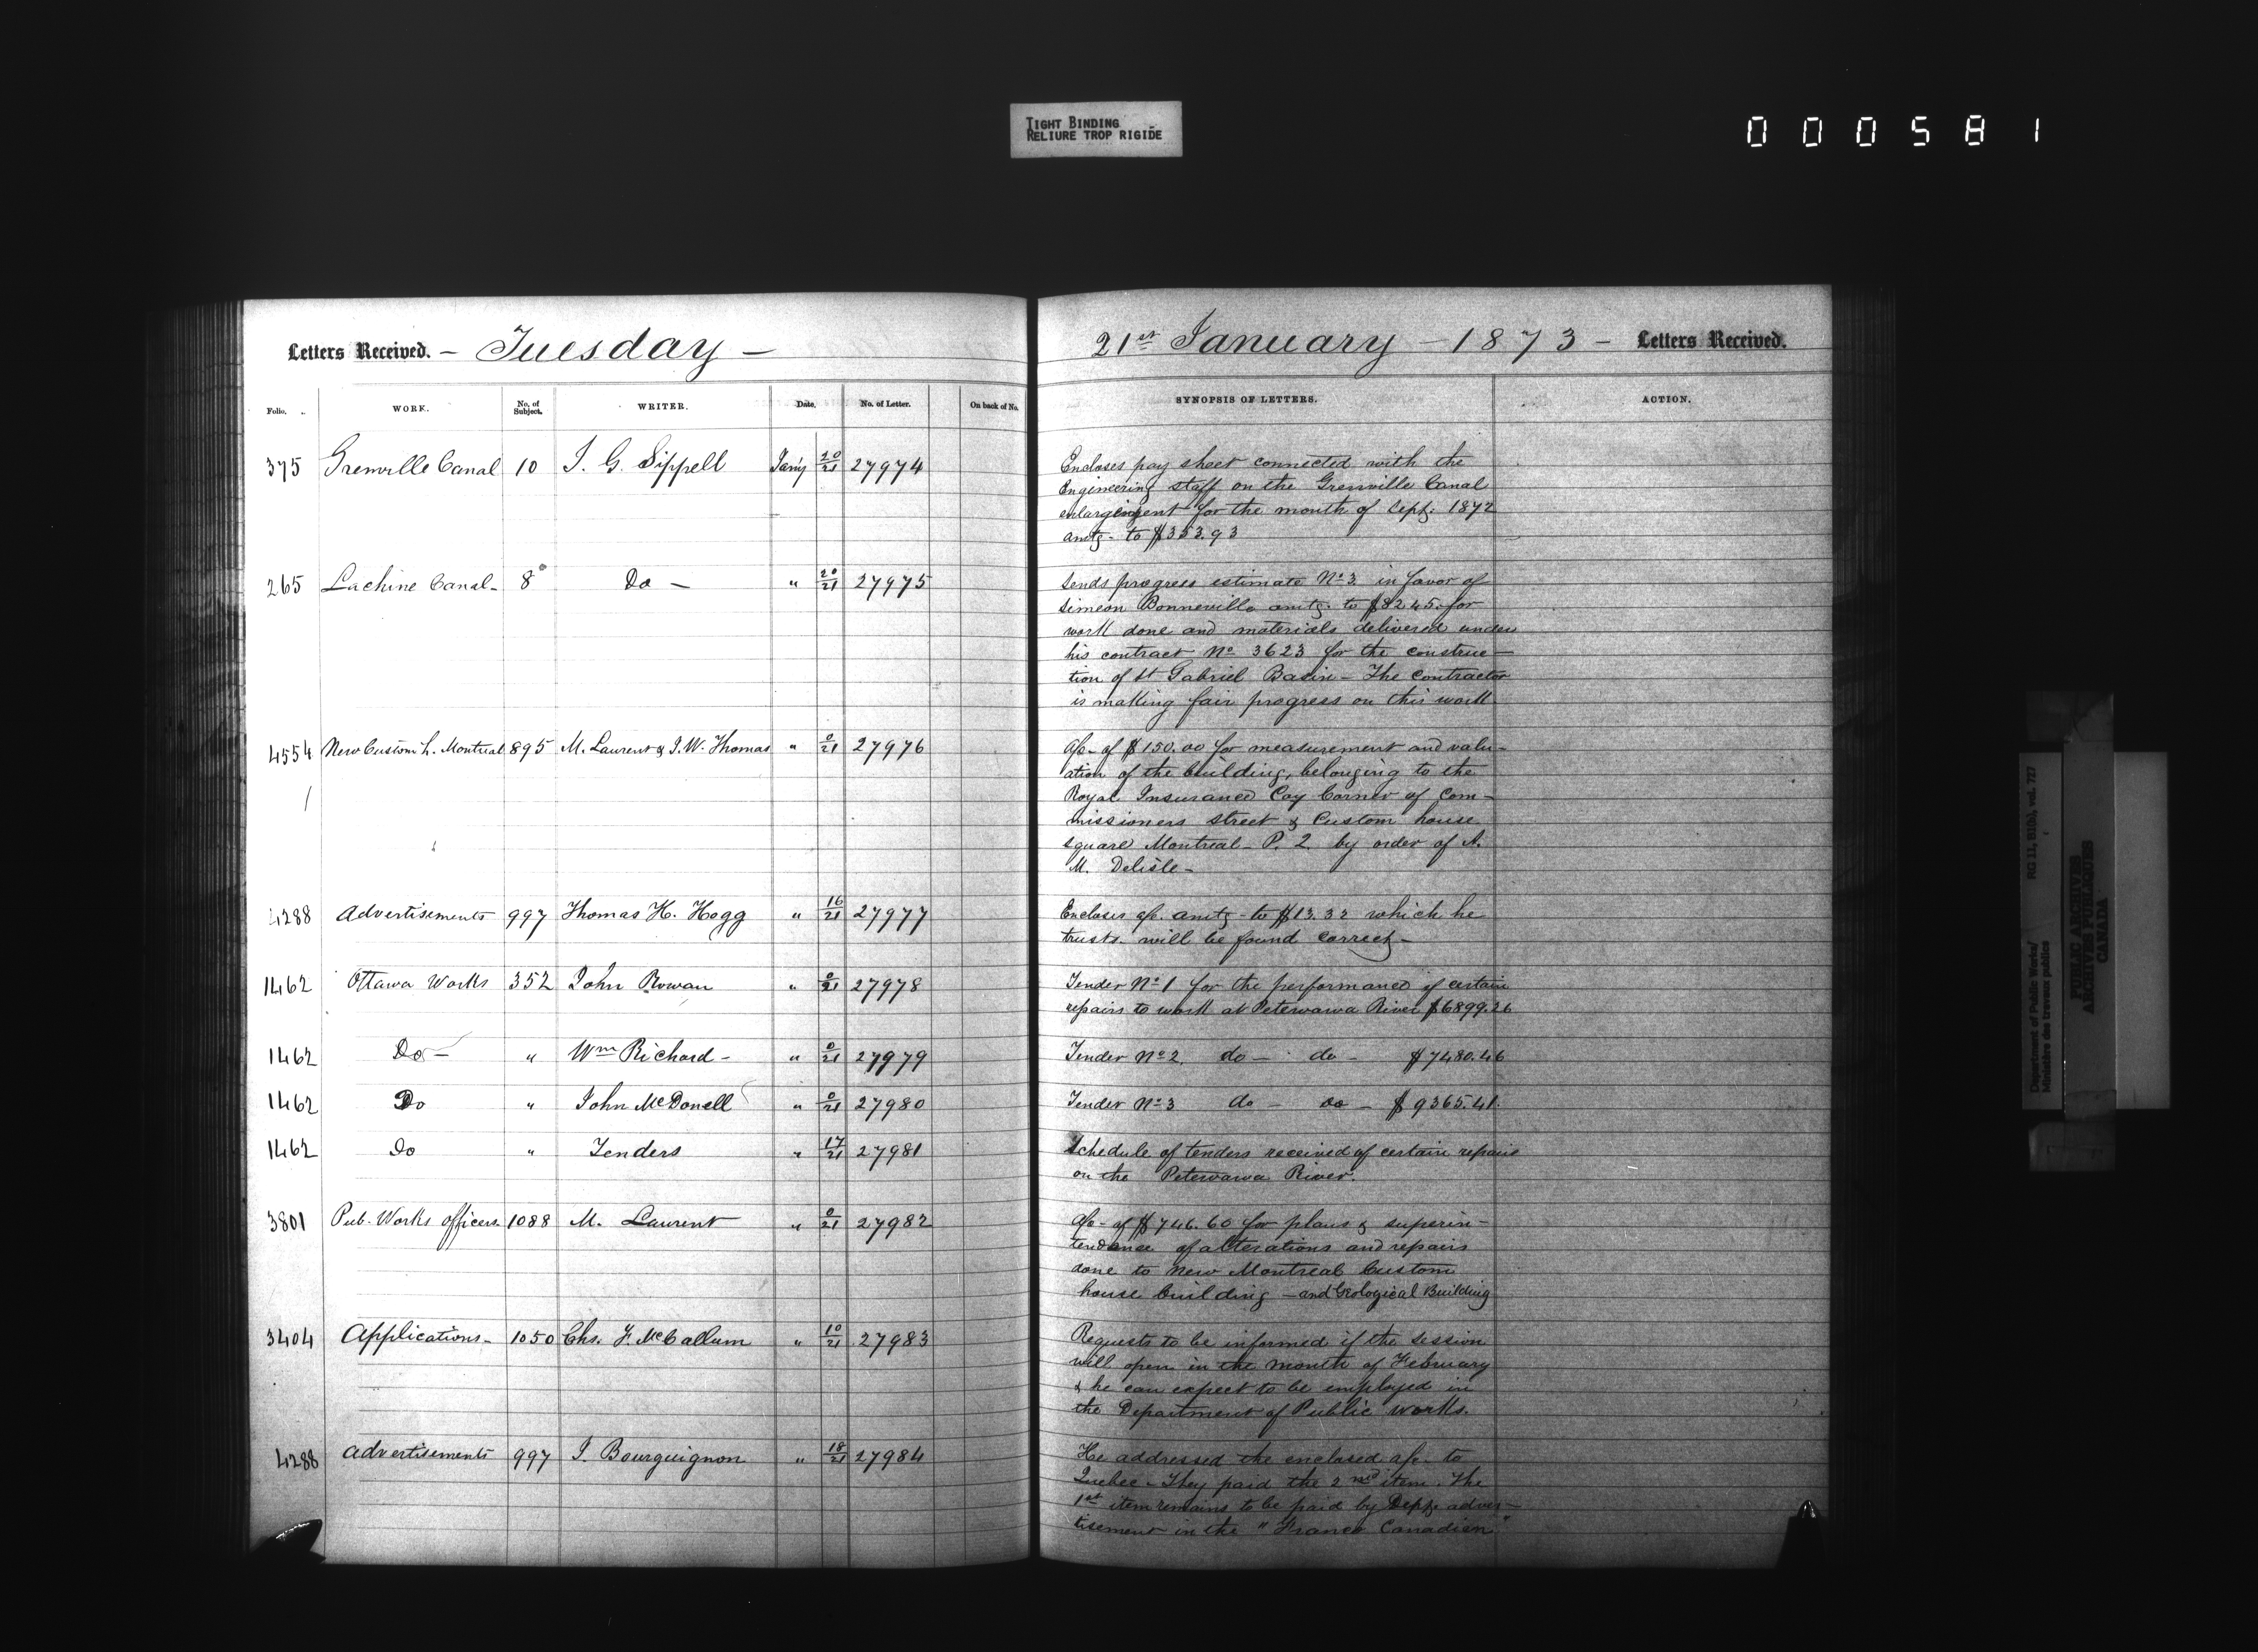 TIGHT BINDING
RELIURE TROP RIGIDE
000581
Letters Received. — Tuesday —
Folio. WORK. No. of Subject. WRITER. Date. No. of Letter. On back of No.
375 Grenville Canal 10 J. G. Sippell Jan'y 20/21 27974
265 Lachine Canal - 8 Do — " 20/21 27975
4554 New Custom h. Montreal 895 M. Laurent & J. W. Thomas " 0/21 27976
4288 Advertisements 997 Thomas H. Hogg " 16/21 27977
1462 Ottawa Works 352 John Rowan " 0/21 27978
1462 Do — " Wm Richard - " 0/21 27979
1462 Do " John McDonell " 0/21 27980
1462 Do " Tenders " 17/21 27981
3801 Pub. Works officers 1088 M. Laurent " 0/21 27982
3404 Applications - 1050 Chs. F. McCallum " 10/21 27983
4288 Advertisements 997 J. Bourguignon " 18/21 27984
21st January — 1873 — Letters Received.
SYNOPSIS OF LETTERS. ACTION.
Encloses pay sheet connected with the
Engineering staff on the Grenville Canal
enlargement for the month of Sept: 1872
amtg - to $353.93
Sends progress estimate No 3 in favor of
Simeon Bonneville amtg. to $8245. for
work done and materials delivered under
his contract No 3623 for the construc-
tion of St Gabriel Basin - The contractor
is making fair progress on this work
a/c - of $150.00 for measurement and valu-
ation of the building, belonging to the
Royal Insurance Coy Corner of Com-
missioners street & Custom house
square Montreal - P. 2. by order of A.
M. Delisle -
Encloses a/c. amtg - to $13.32 which he
trusts will be found correct -
Tender No 1 for the performance of certain
repairs to work at Petewawa River $6899.26
Tender No 2. do — do — $7480.46
Tender No 3 do — do — $9365.41
Schedule of tenders received of certain repairs
on the Petewawa River.
a/c - of $746.60 for plans & superin-
tendance of alterations and repairs
done to new Montreal Custom
house building - and Geological Building
Requests to be informed if the session
will open in the month of February
& he can expect to be employed in
the Department of Public works.
He addressed the enclosed a/c - to
Quebec - They paid the 2nd item. The
1st item remains to be paid by Dept. adver-
tisement in the "Franco Canadien"
Department of Public Works/ RG 11, B1(b), vol. 727
Ministère des travaux publics
PUBLIC ARCHIVES
ARCHIVES PUBLIQUES
CANADA